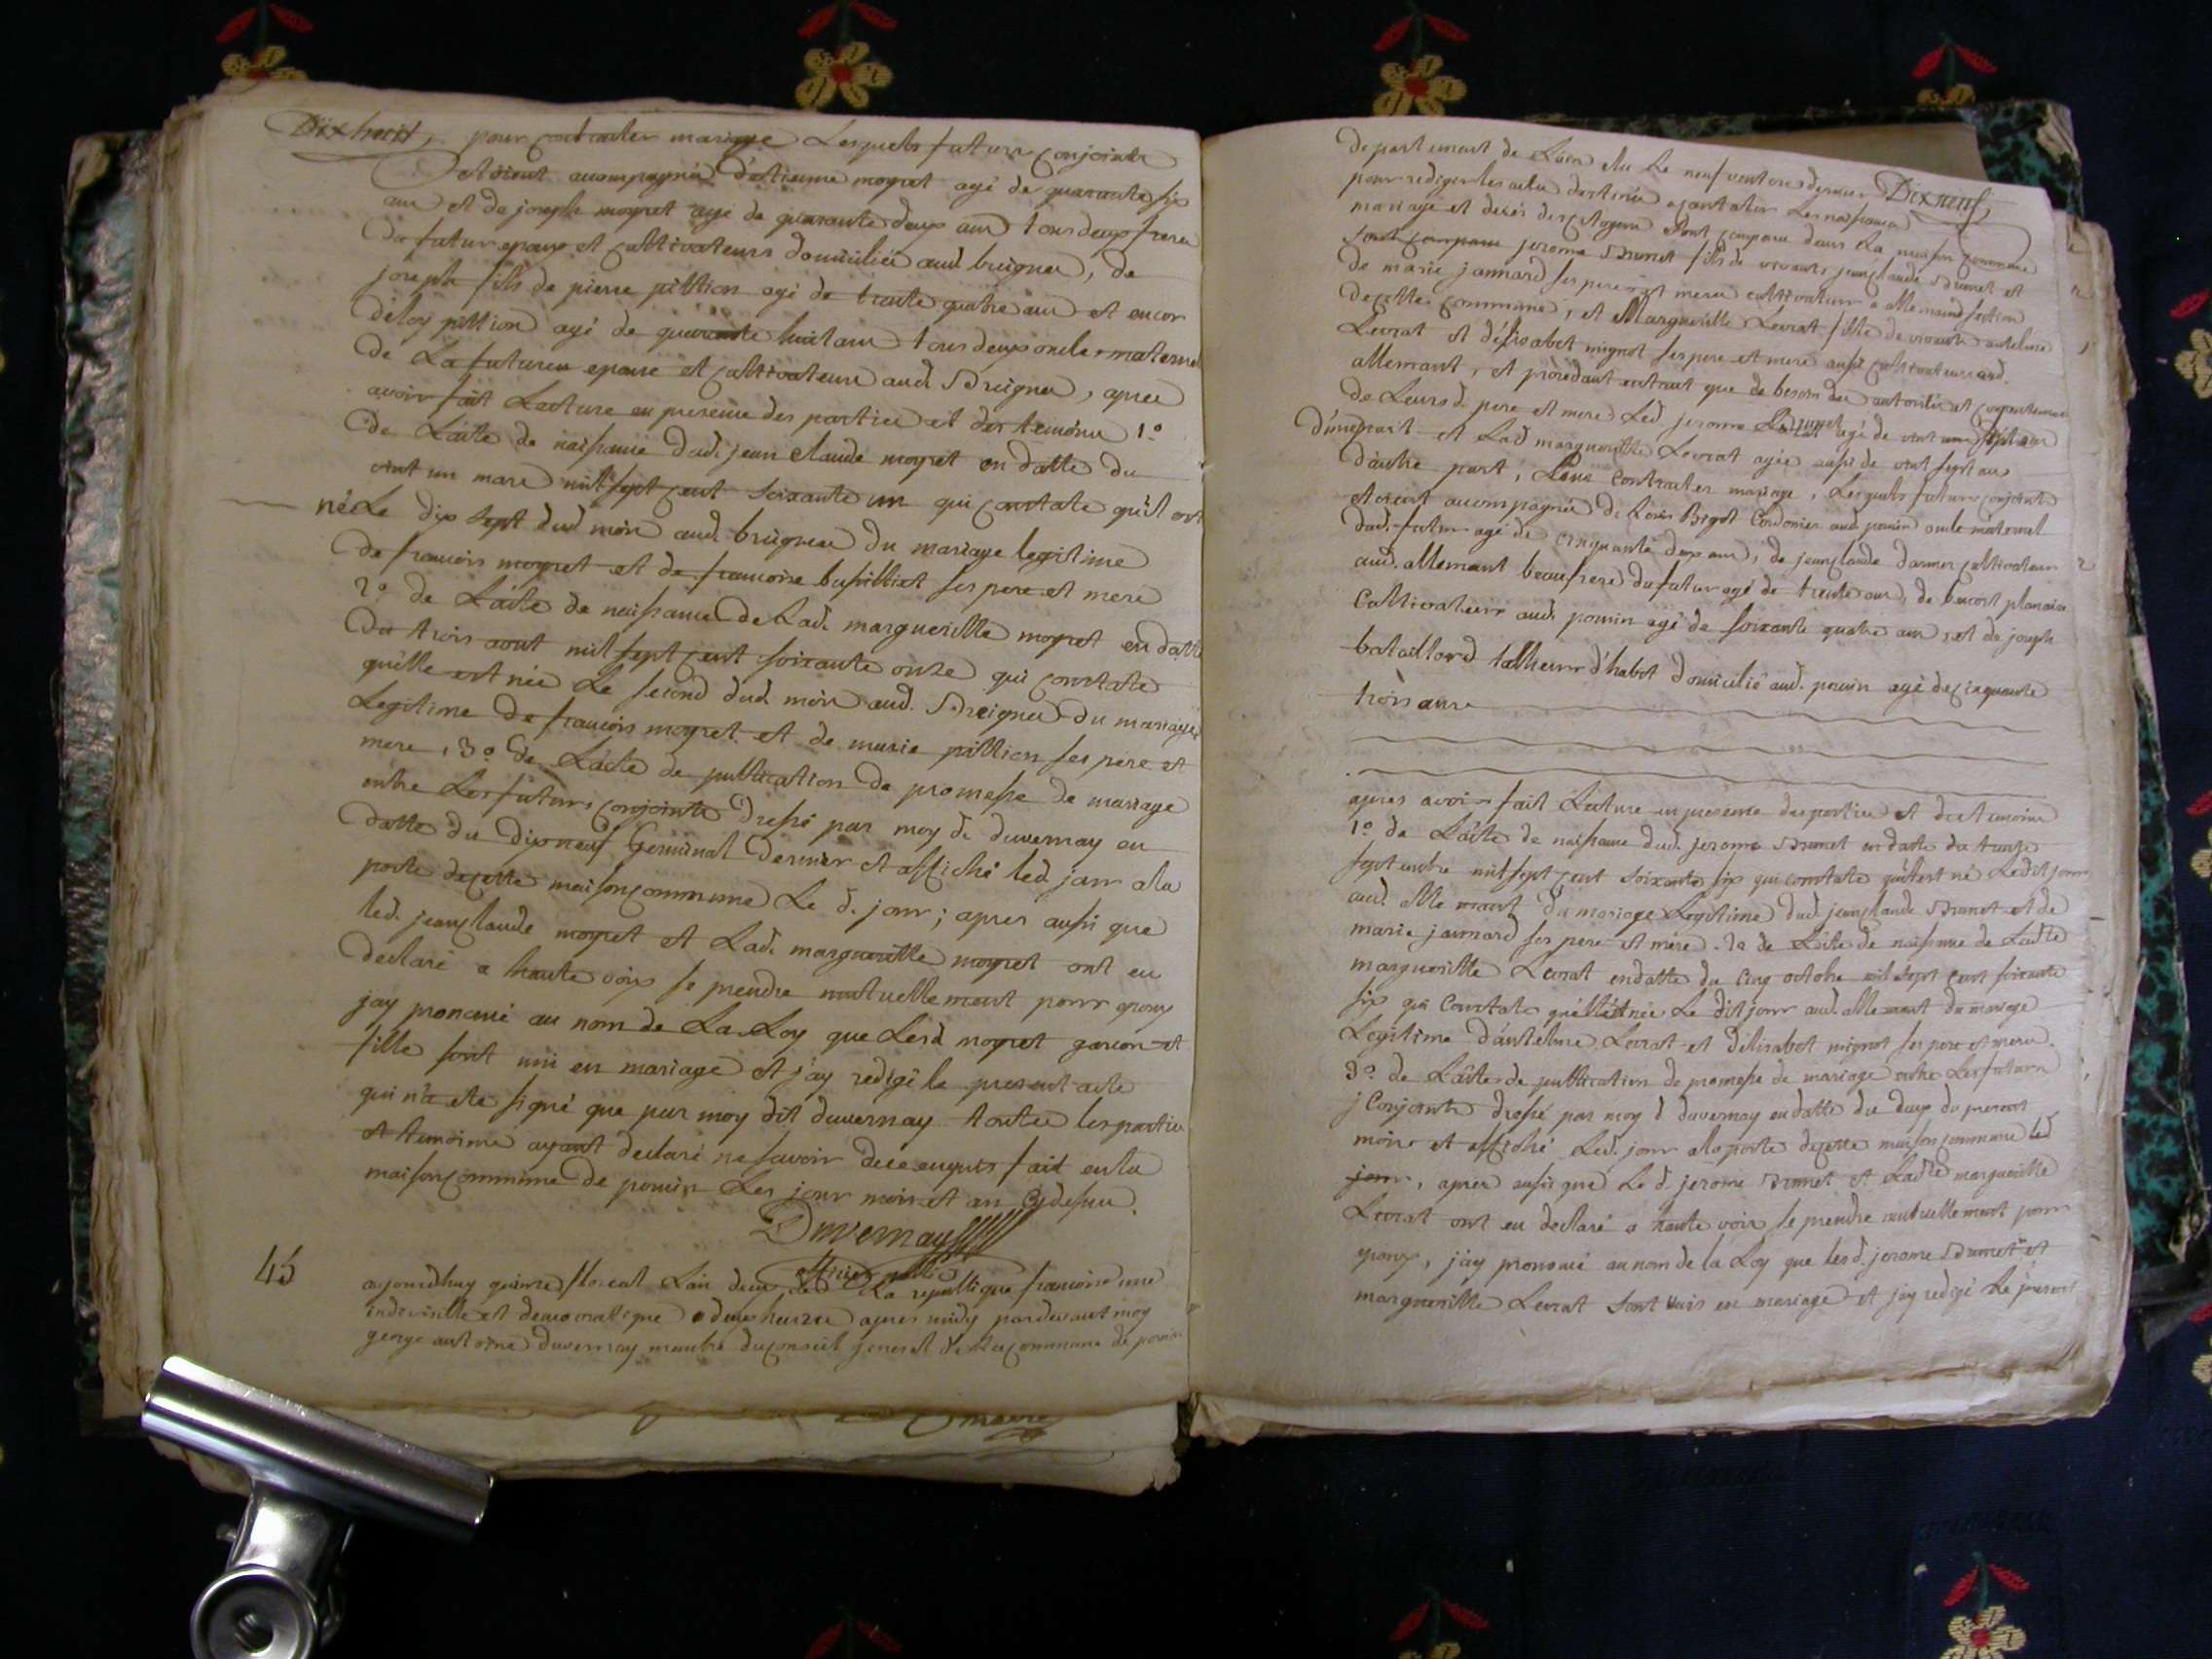 Dixhuit, pour contracter mariage Lesquels futurs conjoints
etoient accompagnés d'etienne moyret agé de quarante six
ans et de joseph moyret agé de quarante deux ans tous deux freres
du futur epoux et cultivateurs domiciliés aud. breignes, de
joseph fils de pierre pittion agé de trente quatre ans et encor
d'eloy pittion agé de quarante huit ans tous deux oncles maternel
de La future epouse et cultivateurs aud. Breignes, apres
avoir fait Lecture en presence des parties et des temoins 1.o
de L'acte de naissance dud. jean claude moyret en datte du
vint un mars mil sept cent soixante un qui constate qu'il est
né Le dix sept dud mois aud. breignes du mariage legitime
de francois moyret et de francoise ses pere et mere
2.o de L'acte de naissance de Lad. margueritte moyret en datte
du trois aout mil sept cent soixante onze qui constate
qu'elle est née Le second dud. mois aud. Breignes du mariage
Legitime de francois moyret et de marie pittion ses pere et
mere, 3.o de L'acte de publication de promesse de mariage
entre Les futurs conjoints dressé par moy d. duvernay en
datte du dix neuf Germinal dernier et affiché led jour a la
porte de cette maison commune Le d. jour; apres aussi que
led. jean claude moyret et Lad. margueritte moyret ont eu
declaré a haute voix se prendre mutuellement pour epoux
jay prononcé au nom de La Loy que Lesd moyret garcon et
fille sont uni en mariage et jay redigé le present acte
qui n'a ete signé que par moy dit duvernay toutes les parties
et temoins ayant declaré ne savoir de ce enquis fait en la
maison commune de poncin Les jour mois et an cy dessu.
Duvernay
officier public
45
aujourdhuy quinze floreal L'an deux de La republique francoise une
indivisible et democratique a deux heures apres midy pardevant moy
george antoine duvernay membre du conseil general de La commune de poncin
Dix neuf
departement de L'ain elu Le neuf ventose dernier
pour rediger les actes destinés a constater Les naissances
mariage et deces des citoyens sont comparu dans La maison commune
sont comparu jerome Brunet fils de vivants jean claude Brunet et
de marie jannard ses pere et mere cultivateurs a allemant section
de cette commune, et Margueritte Levrat fille de vivants antelme
Levrat et d'elisabet mignot ses pere et mere aussi cultivateurs aud.
allemant, et procedant entant que de besoin des autorités et consentement
de Leursd. pere et mere Led. jerome Brunet agé de vint sept ans
d'une part et Lad margueritte Levrat agée aussi de vint sept ans
d'autre part, Pour contracter mariage, Lesquels futurs conjoints
etoient accompagnés de Louis Bigot Cordonier aud poncin oncle maternel
dud. futur agé de cinquante deux ans, de jean claude darmes cultivateur
aud. allemant beaufrere du futur agé de trente ans, de benoit
Cultivateur aud. poncin agé de soixante quatre ans, et de joseph
bataillard talheur d'habit domicilié aud. poncin agé de cinquante
trois ans
apres avoir fait Lecture en presence des parties et des temoins
1.o de L'acte de naissance dud. jerome Brunet en datte du
septembre mil sept cent soixante six qui constate qu'il est né Ledit jour
aud. allemant du mariage Legitime dud. jean claude Brunet et de
marie jannard ses pere et mere. 2.o de L'acte de naissance de Ladte
margueritte Levrat en datte du cinq octobre mil sept cent soixante
six qui Constate qu'elle est née Le dit jour aud. allemant du mariage
Legitime d'antelme Levrat et d'elisabet mignot ses pere et mere.
3.o de L'acte de publication de promesse de mariage entre Les futurs
Conjoints dressé par moy d. duvernay en datte du deux du present
mois et affiché Led. jour a la porte de cette maison commune led
jour, apres aussi que Le d. jerome Brunet et Ladte margueritte
Levrat ont eu declaré a haute voix se prendre mutuellement pour
epoux, j'ay prononcé au nom de la Loy que lesd. jerome Brunet et
margueritte Levrat sont unis en mariage et jay redigé Le present